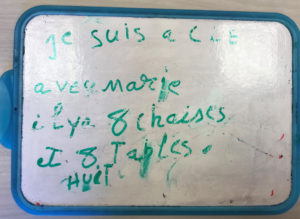 je suis a CLE
avec marie
il ya 8 chaises
et 8 Tables.
HUIT